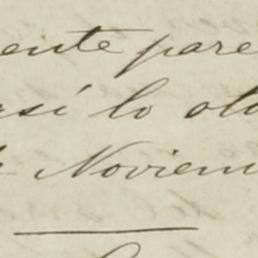 ente pare
así lo oto
Noviem